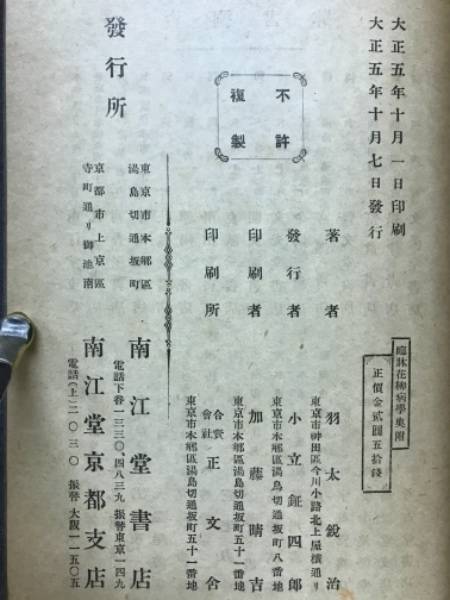 大正五年十月一日印刷
大正五年十月七日發行
臨牀花柳病學奧附
正價金貳圓五拾錢
不許
複製
著者
東京市神田區今川小路北上屋橫通リ
羽太銳治
發行者
東京市本鄕區湯島切通坂町八番地
小立鉦四郎
印刷者
東京市本鄕區湯島切通坂町五十一番地
加藤晴吉
印刷所
東京市本鄕區湯島切通坂町五十一番地
合資會社 正文舍
發行所
東京市本鄕區
湯島切通坂町
南江堂書店
電話下谷一三三〇、四八三九 振替東京一四九
京都市上京區
寺町通リ御池南
南江堂京都支店
電話(上)二〇三〇 振替大阪一一五〇五